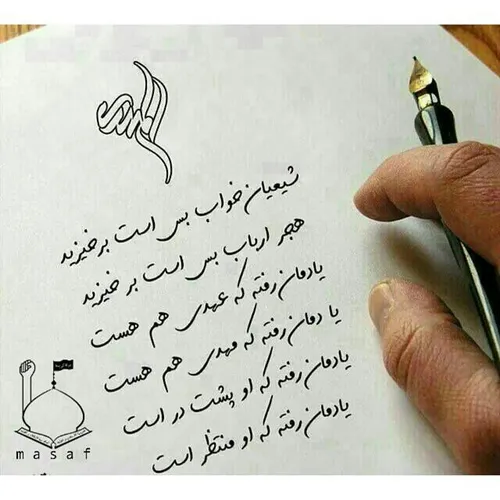 المهدی
شیعیان خواب بس است برخیزید
هجر ارباب بس است برخیزید
یادمان رفته که عهدی هم هست
یادمان رفته که مهدی هم هست
یادمان رفته که او پشت در است
یادمان رفته که او منتظر است
masaf